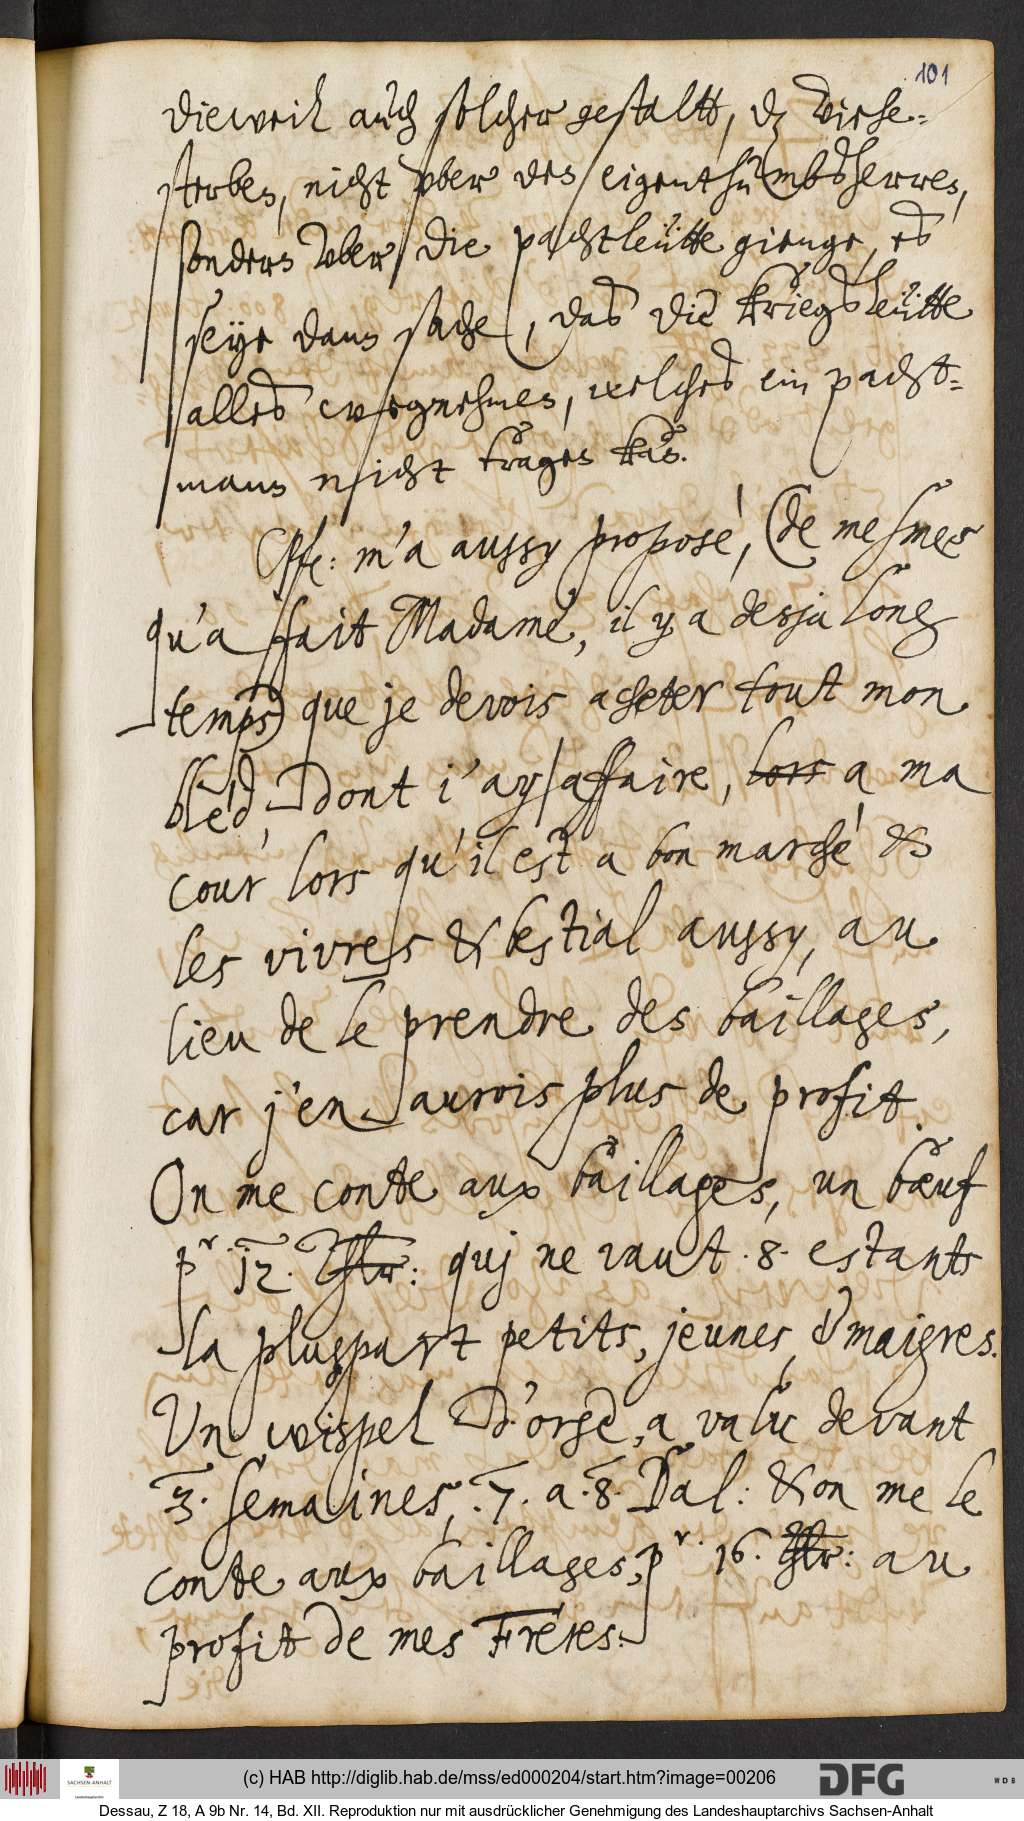 101
dieweil auch solcher gestaltt, dz viehe-
sterben, nicht vber den eigenthumbsherren,
sondern vber die pachtleütte gienge, es
seye dann sache, das die kriegsleütte
alles wegnehmen, welches ein pacht-
mann nicht tragen kan.
m'a aussy proposè, (de mesmes
qu'a fait Madame, il y a desja long
temps) que je devois acheter tout mon
bled, dont i'ay affaire, lors a ma
cour lors qu'il est a bon marchè &
les vivres & bestial aussy, au
lieu de le prendre des baillages,
car j'en aurois plus de profit.
On me conte aux baillages, un bœuf
pr. 12. Thlr: quj ne vaut .8. estants
la pluspart petits, jeunes, & maigres.
Un wispel d'orge, a valu devant
3. semaines, .7. a .8. Dal: & on me le
conte aux baillages, pr. 16. Thlr: au
profit de mes Freres.
(c) HAB http://diglib.hab.de/mss/ed000204/start.htm?image=00206
SACHSEN-ANHALT
Landeshauptarchiv
DFG
WDB
Dessau, Z 18, A 9b Nr. 14, Bd. XII. Reproduktion nur mit ausdrücklicher Genehmigung des Landeshauptarchivs Sachsen-Anhalt